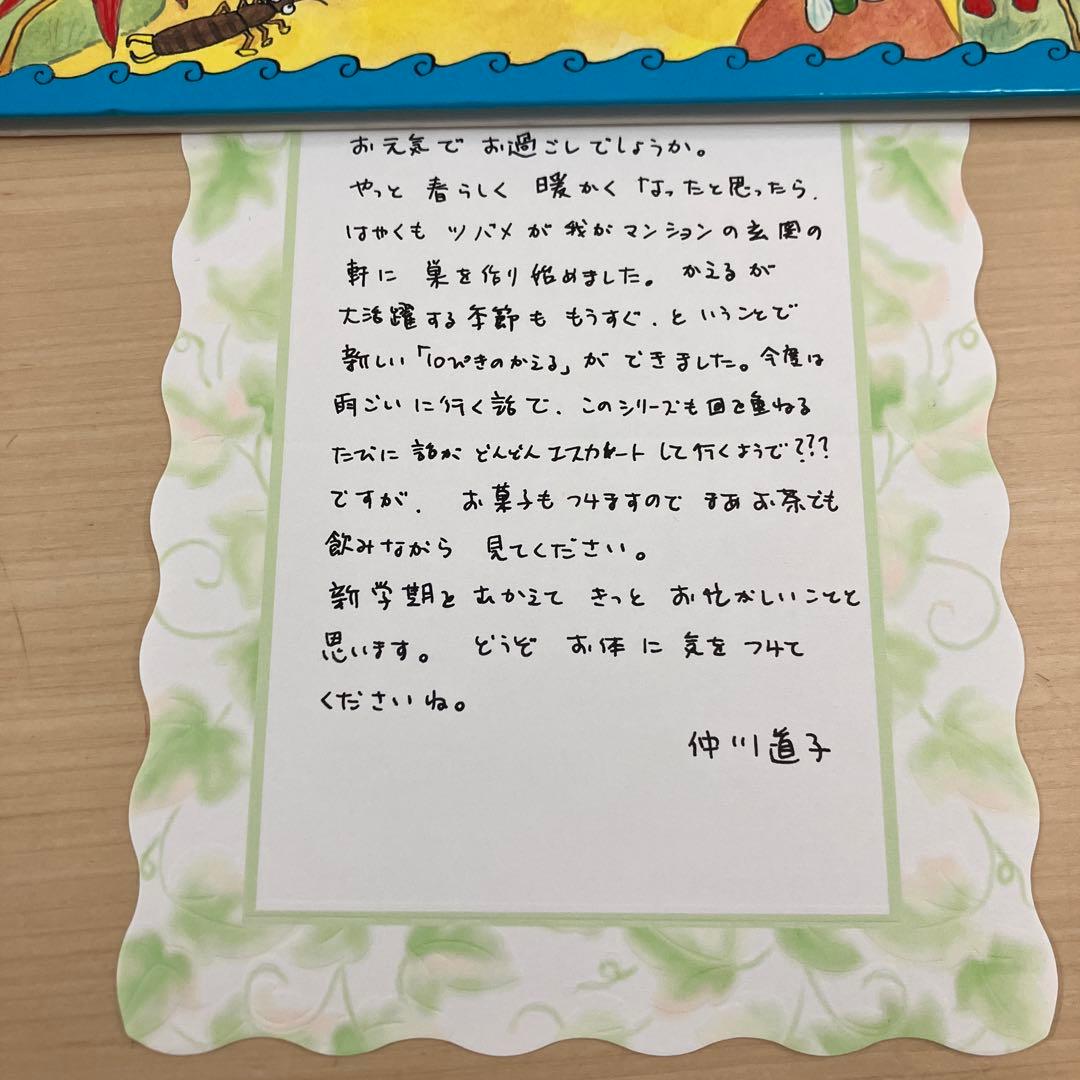 お元気で お過ごしでしょうか。
やっと 春らしく 暖かく なったと思ったら、
はやくも ツバメが 我がマンションの玄関の
軒に 巣を作り始めました。 かえるが
大活躍する季節も もうすぐ、と いうことで
新しい「10ぴきのかえる」が できました。今度は
雨ごいに行く話で、このシリーズも回を重ねる
たびに 話が どんどん エスカレート して行くようで???
ですが、 お菓子も つけますので まあ お茶でも
飲みながら 見てください。
新学期を むかえて きっと お忙がしいことと
思います。 どうぞ お体に 気を つけて
くださいね。
仲川道子